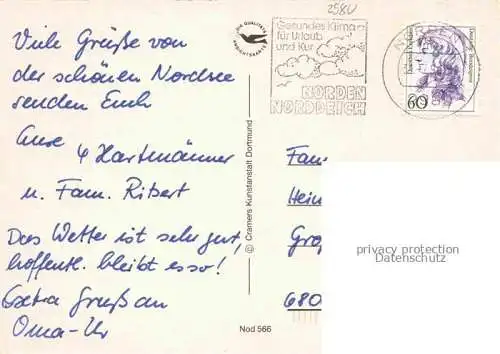 Viele Grüße von
der schönen Nordsee
senden Euch
Eure
4 Hartmänner
u. Fam. Ritsert
Das Wetter ist sehr gut,
hoffentl. bleibt es so!
Extra Gruß an
Oma-Ur
DIE QUALITÄTS
ANSICHTSKARTE
© Cramers Kunstanstalt Dortmund
Nod 566
Gesundes Klima
für Urlaub
und Kur
NORDEN
NORDDEICH
Deutsche Bundespost
60
Fam
Hein
Gro
680
privacy protection
Datenschutz